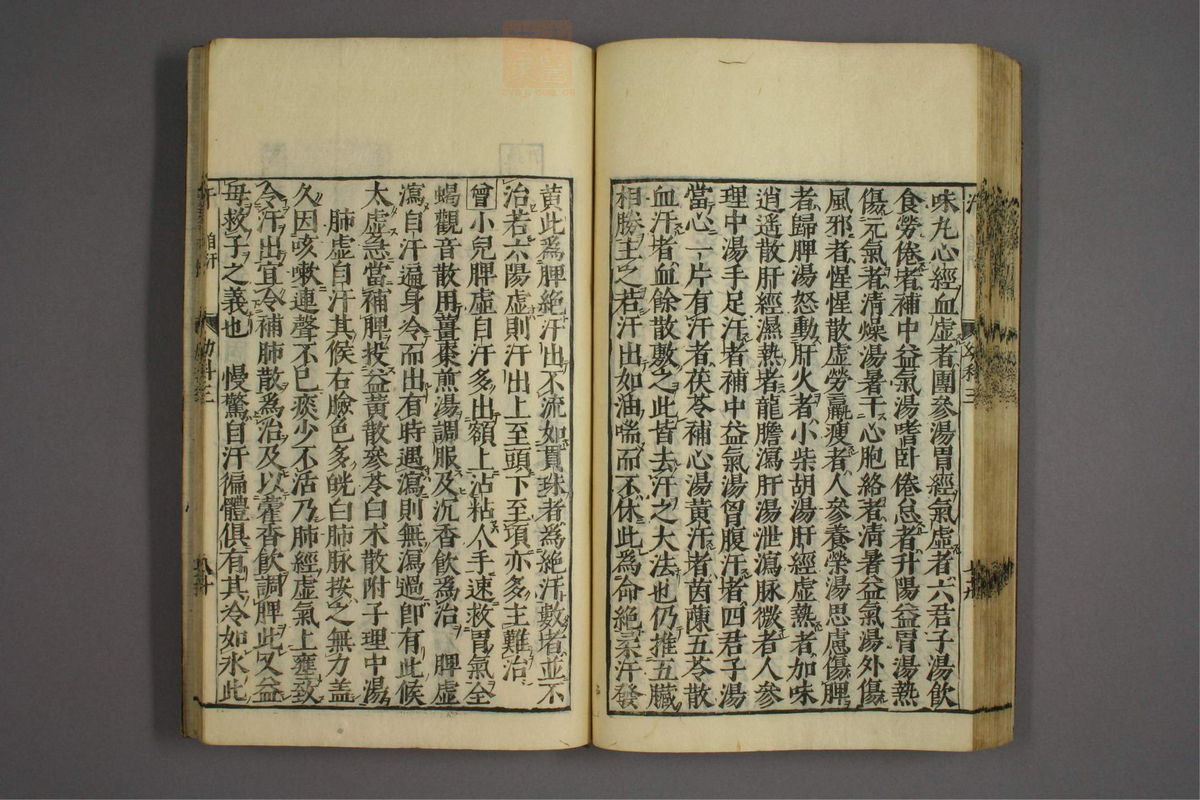 味丸心經血虛者團參湯胃經氣虛者六君子湯飲
食勞倦者補中益氣湯嗜臥倦怠者升陽益胃湯熱
傷元氣者清燥湯暑干心胞絡者清暑益氣湯外傷
風邪者惺惺散虛勞羸瘦者人參養榮湯思慮傷脾
者歸脾湯怒動肝火者小柴胡湯肝經虛熱者加味
逍遥散肝經濕熱者龍膽瀉肝湯泄瀉脉微者人參
理中湯手足汗者補中益氣湯胷腹汗者四君子湯
當心一片有汗者茯苓補心湯黃汗者茵蔯五苓散
血汗者血餘散敷之此皆去汗之大法也仍推五臟
相勝主之若汗出如油喘而不休此爲命絶柔汗發
黃此爲脾絶汗出不流如貫珠者爲絶汗數者並不
治若六陽虛則汗出上至頭下至項亦多主難治
曾小兒脾虛自汗多出額上沾粘人手速救胃氣全
蝎觀音散用薑棗煎湯調服及沉香飲爲治 脾虛
瀉自汗遍身冷而出有時遇瀉則無瀉過卽有此候
太虛急當補脾投益黃散參苓白朮散附子理中湯
肺虛自汗其候右臉色多㿠白肺脉按之無力盖
久因咳嗽連聲不已痰少不活乃肺經虛氣上壅致
令汗出宜令補肺散爲治及以藿香飲調脾此又益
母救子之義也 慢驚自汗徧體俱有其冷如氷此
汗 自汗 幼科三